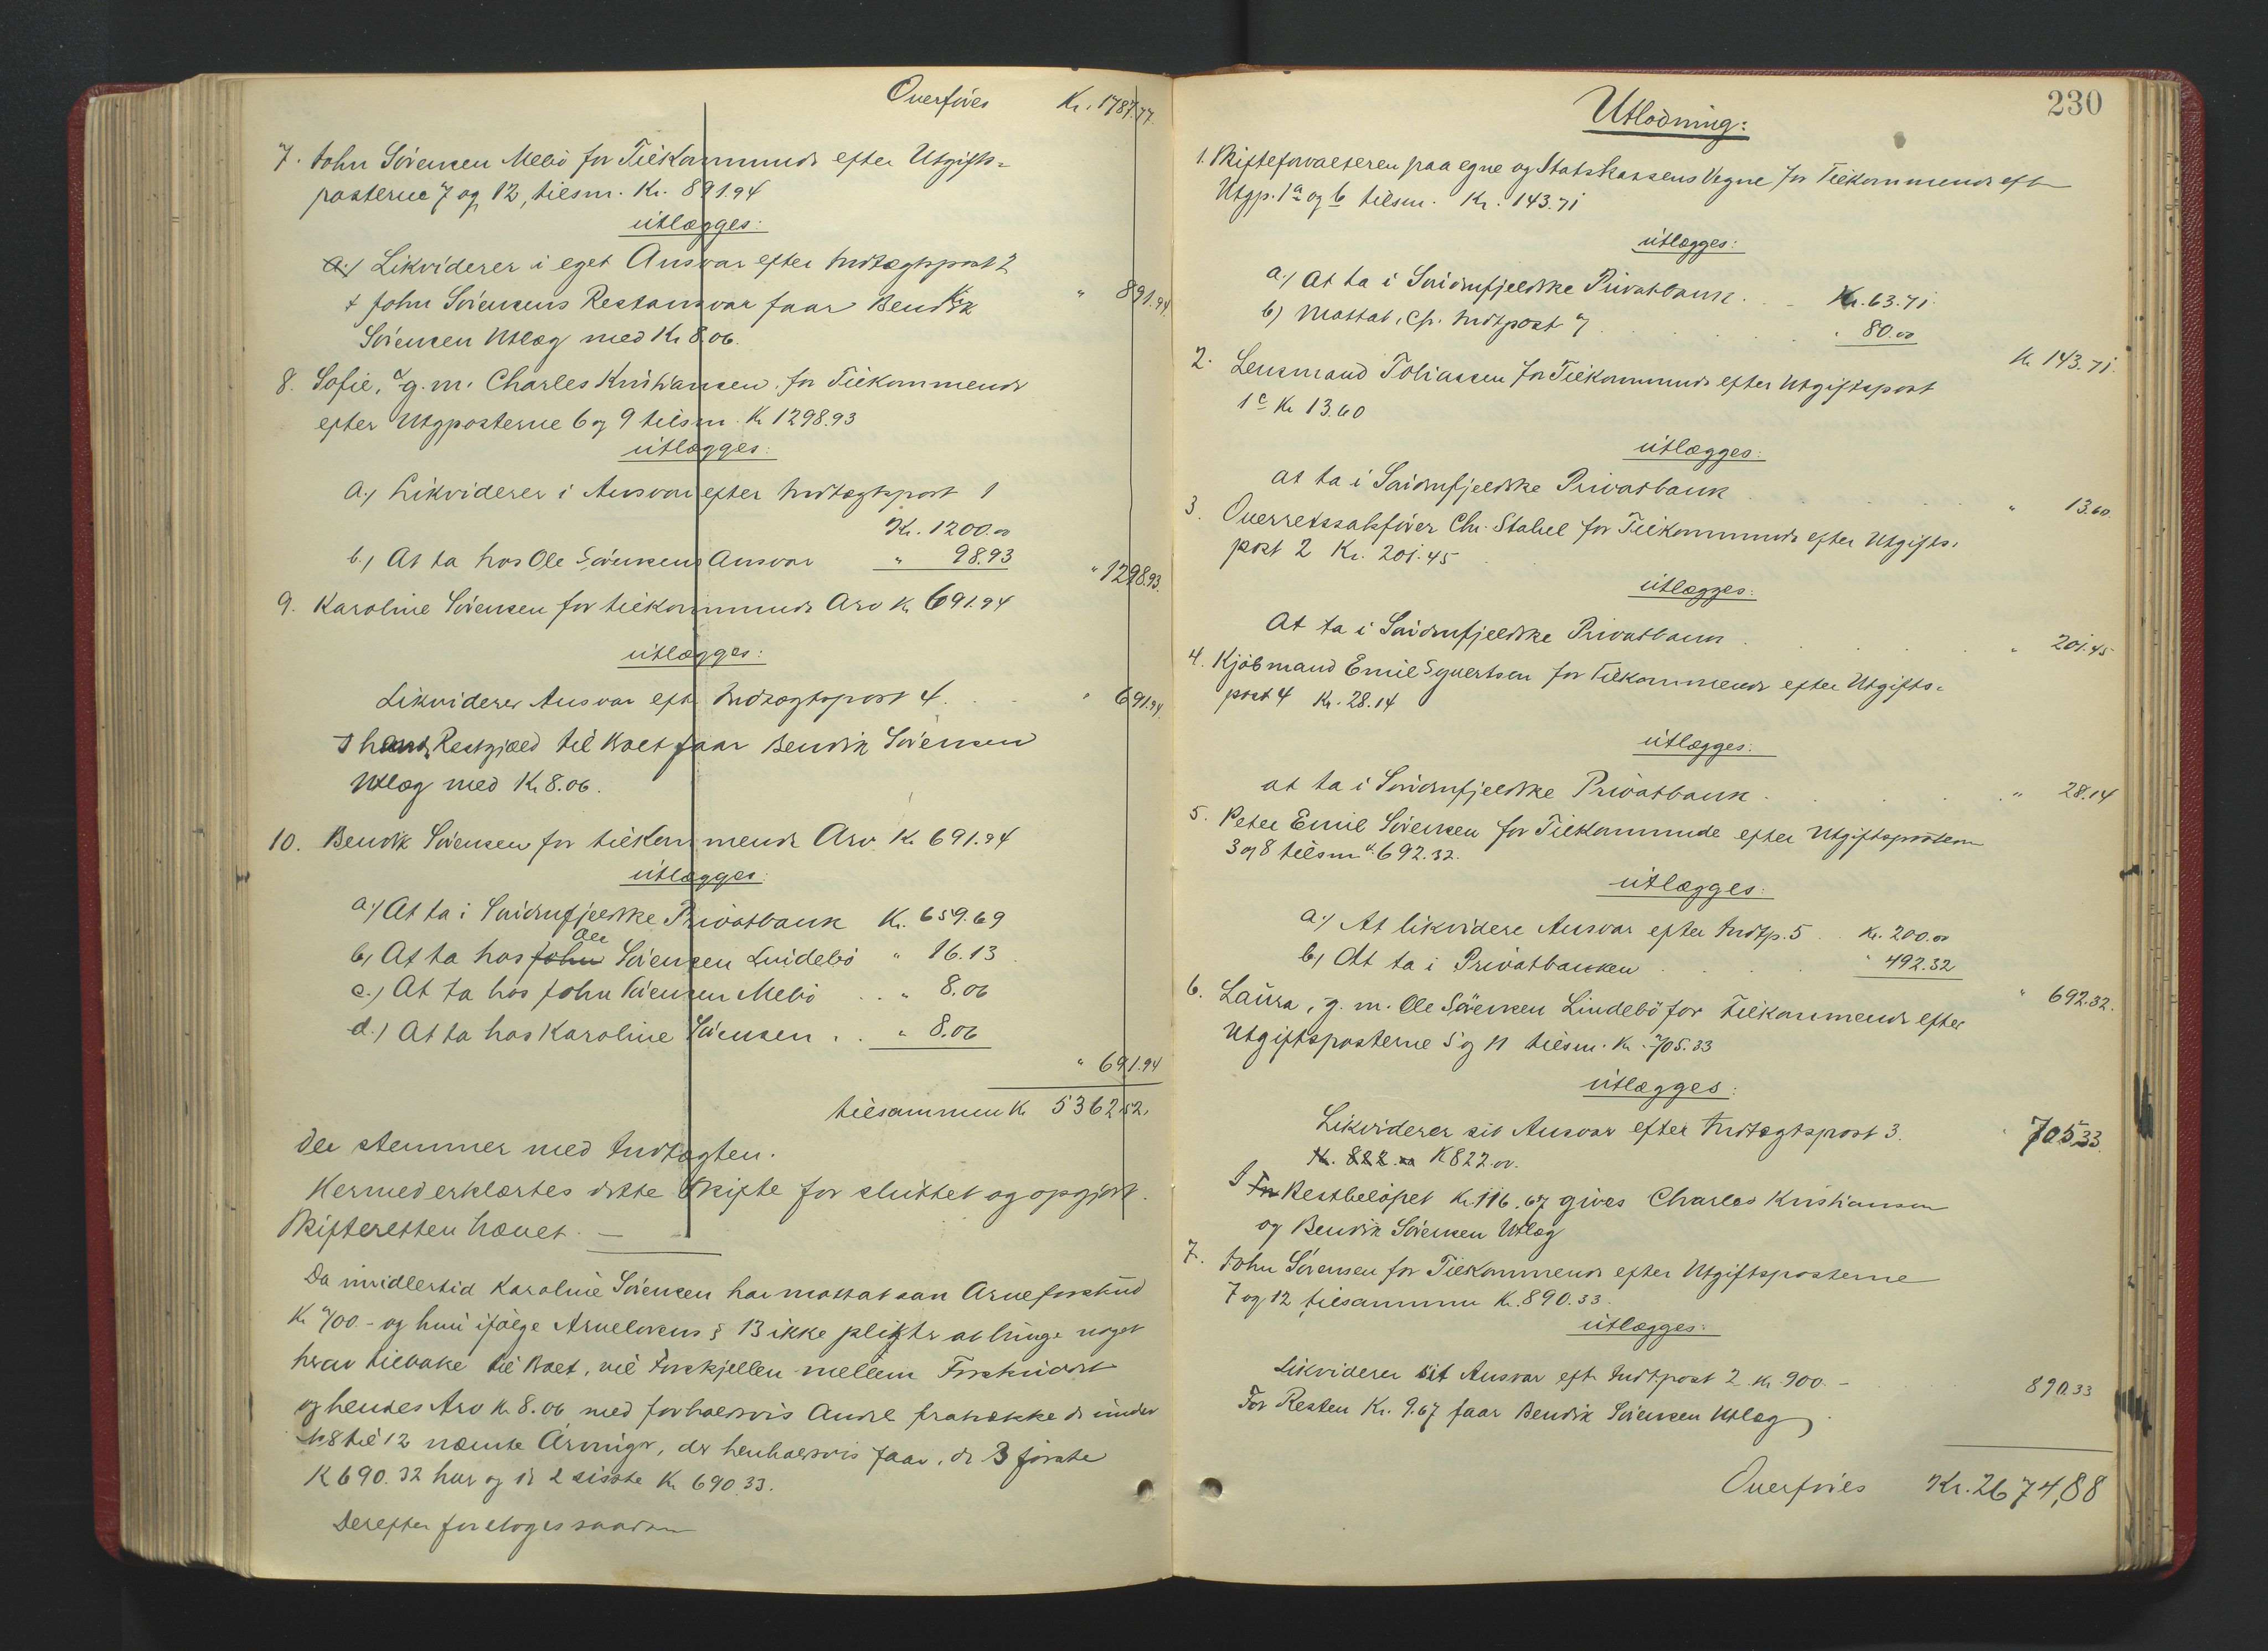 Overføres Kr. 1787.77.
7. John Sørensen Mebø for Tilkommende efter Utgifts-
posterne 7 og 12, tilsm. Kr. 891.94
utlægges:
a.) Likviderer i eget Ansvar efter Indtægtspost 2 " 891.94
I John Sørensens Restansvar faar Bendik
Sørensen Utlæg med Kr 8.06.
8. Sofie, g. m. Charles Kristiansen, for Tilkommende
efter Utgposterne 6 og 9 tilsm. Kr 1298.93
utlægges:
a.) Likviderer i Ansvar efter Indtægtspost 1
Kr. 1200.00
b.) At ta hos Ole Sørensens Ansvar " 98.93
" 1298.93.
9. Karoline Sørensen for tilkommende Arv Kr 691.94
utlægges:
Likviderer Ansvar eft. Indtægtspost 4. " 691.94.
I hans Restgjæld til Boet faar Bendik Sørensen
Utlæg med Kr 8.06.
10. Bendik Sørensen for tilkommende Arv Kr 691.94
utlægges:
a.) At ta i Søndenfjeldske Privatbank Kr. 659.69
b.) At ta hos John Ole Sørensen Lindebø " 16.13
c.) At ta hos John Sørensen Mebø . . " 8.06
d.) At ta hos Karoline Sørensen . . " 8.06
" 691.94
tilsammen Kr 5362.52.
der stemmer med Indtægten.
Hermed erklærtes dette Skifte for sluttet og opgjort.
Skifteretten hævet. —
Da imidlertid Karoline Sørensen har mottat som Arveforskud
Kr 700.- og hun ifølge Arvelovens § 13 ikke pligter at bringe noget
herav tilbake til Boet, vil Forskjellen mellem Forskudet
og hendes Arv Kr. 8.06 med forholdsvis Andel fratrække de under
8 til 12 nævnte Arvinger, der henholdsvis faar, de 3 første
Kr 690.32 hver og de 2 sisste Kr 690.33.
Derefter foretoges saadan
230
Utlodning:
1. Skifteforvalteren paa egne og Statskassens Vegne for Tilkommende eft
Utgp. 1a og b tilsm. Kr. 143.71
utlægges:
a.) At ta i Søndenfjeldske Privatbank . . Kr. 63.71.
b) Mottat, cfr. Indtpost 7 . . . . " 80.00
Kr 143.71.
2. Lensmand Tobiassen for Tilkommende efter Utgiftspost
1c Kr 13.60
utlægges:
at ta i Søndenfjeldske Privatbank . . . . " 13.60.
3. Overretssakfører Chr. Stabel for Tilkommende efter Utgifts-
post 2 Kr. 201.45
utlægges:
At ta i Søndenfjeldske Privatbank . . . . " 201.45
4. Kjøbmand Emil Syvertsen for Tilkommende efter Utgifts-
post 4 Kr. 28.14
utlægges:
at ta i Søndenfjeldske Privatbank . . . . " 28.14
5. Peter Emil Sørensen for Tilkommende efter Utgiftsposterne
3 og 8 tilsm Kr. 692.32.
utlægges:
a.) At likvidere Ansvar efter Indtp. 5 . . Kr. 200.00
b.) At ta i Privatbanken . . . . " 492.32
" 692.32.
6. Laura, g. m. Ole Sørensen Lindebø for Tilkommende efter
Utgiftsposterne 5 og 11 tilsm. Kr. 705.33
utlægges:
Likviderer sit Ansvar efter Indtægtspost 3. " 705.33.
Kr. 822.00 K 822.00.
I For Restbeløpet Kr. 116.67 gives Charles Kristiansen
og Bendik Sørensen Utlæg
7. John Sørensen for Tilkommende efter Utgiftsposterne
7 og 12 tilsammen Kr. 890.33.
utlægges:
Likviderer sit Ansvar eft. Indtpost 2 Kr. 900.- 890.33
For Resten Kr. 9.67 faar Bendik Sørensen Utlæg.
Overføres Kr. 2674,88